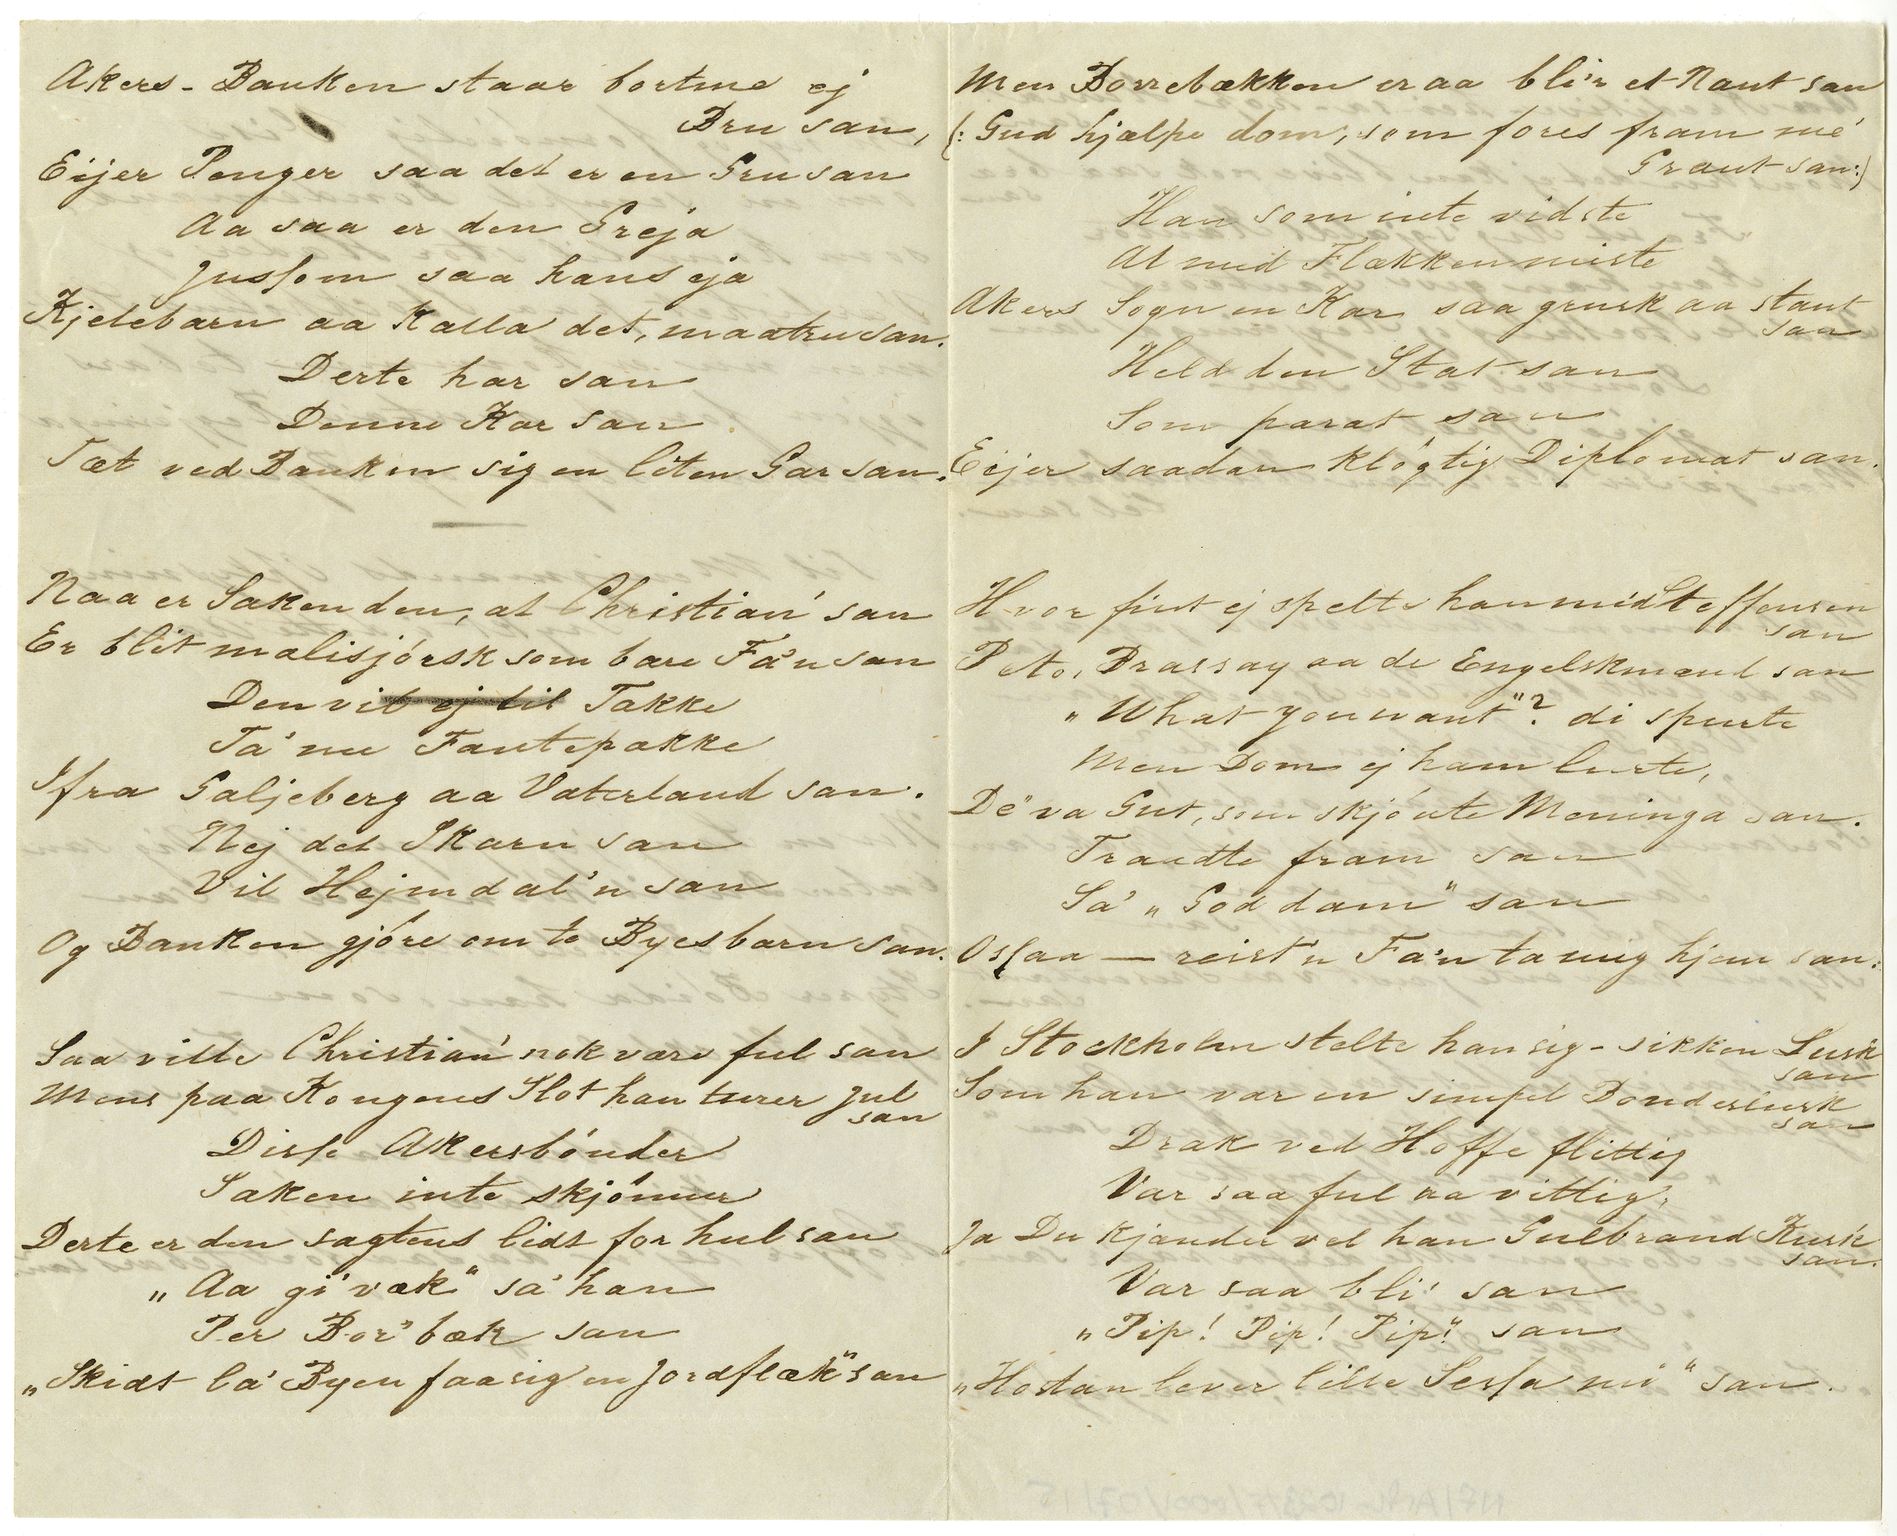 Akers-Banken staar bortme ej
Bru san,
Eijer Penger saa det er en Gru san
Aa saa er den Greja
Jussom saa hans eja
Kjelebarn aa Kalla det, maatru san.
Derte har san
Denne Kar san
Tæt ved Banken sig en liten Gar san.
Naa er Saken den, at Christian' san
Er blit malisjórsk som bare Fa'n san
Den vil ej til Takke
Ta' nu Fantepakke
Ifra Galjeberg aa Vaterland san.
Nej det Skarn san
Vil Hejmdal'n san
Og Banken gjóre om to Byesbarn san.
Saa vilde Christian' nok være ful san
Mens paa Kongens Slot han turer Jul
san
Disse Akersbónder
Saken inte skjónner
Derte er den sagtens lidt for hul san
„Aa gi' væk" sa' han
Per Bor'bæk san
„Skidt la' Byen faa sig en Jordflæk" san
Men Borrebækken er aa bli'r et Naut san
(: Gud hjælpe dom, som fores fram me'
Graut san :)
Han som inte vidste
At med Flækken miste
Akers Sogn en Kar saa grusk aa staut
san
Held den Stat san
Som parat san
Eijer saadan klógtig Diplomat san.
Hvor fint ej spelte han mid Steffensen
san
Peto, Brassay aa de Engelskmænd san
„What you want"? di spurte
Men Dom ej ham lurte,
De' va Gut, som skjónte Meninga san.
Traadte fram san
Sa' „God dam" san
Ossaa — reist'n Fa'n ta mig hjem san.
I Stockholm stelte han sig - sikken Lusk
san
Som han var en simpel Bonderlusk
san
Drak ved Hoffe flittig
Var saa ful aa vittig,
Ja Du kjænder vel han Gulbrand Kusk
san.
Var saa bli' san
„Pip! Pip! Pip!" san
„Hostan lever lille Sessa mi" san.